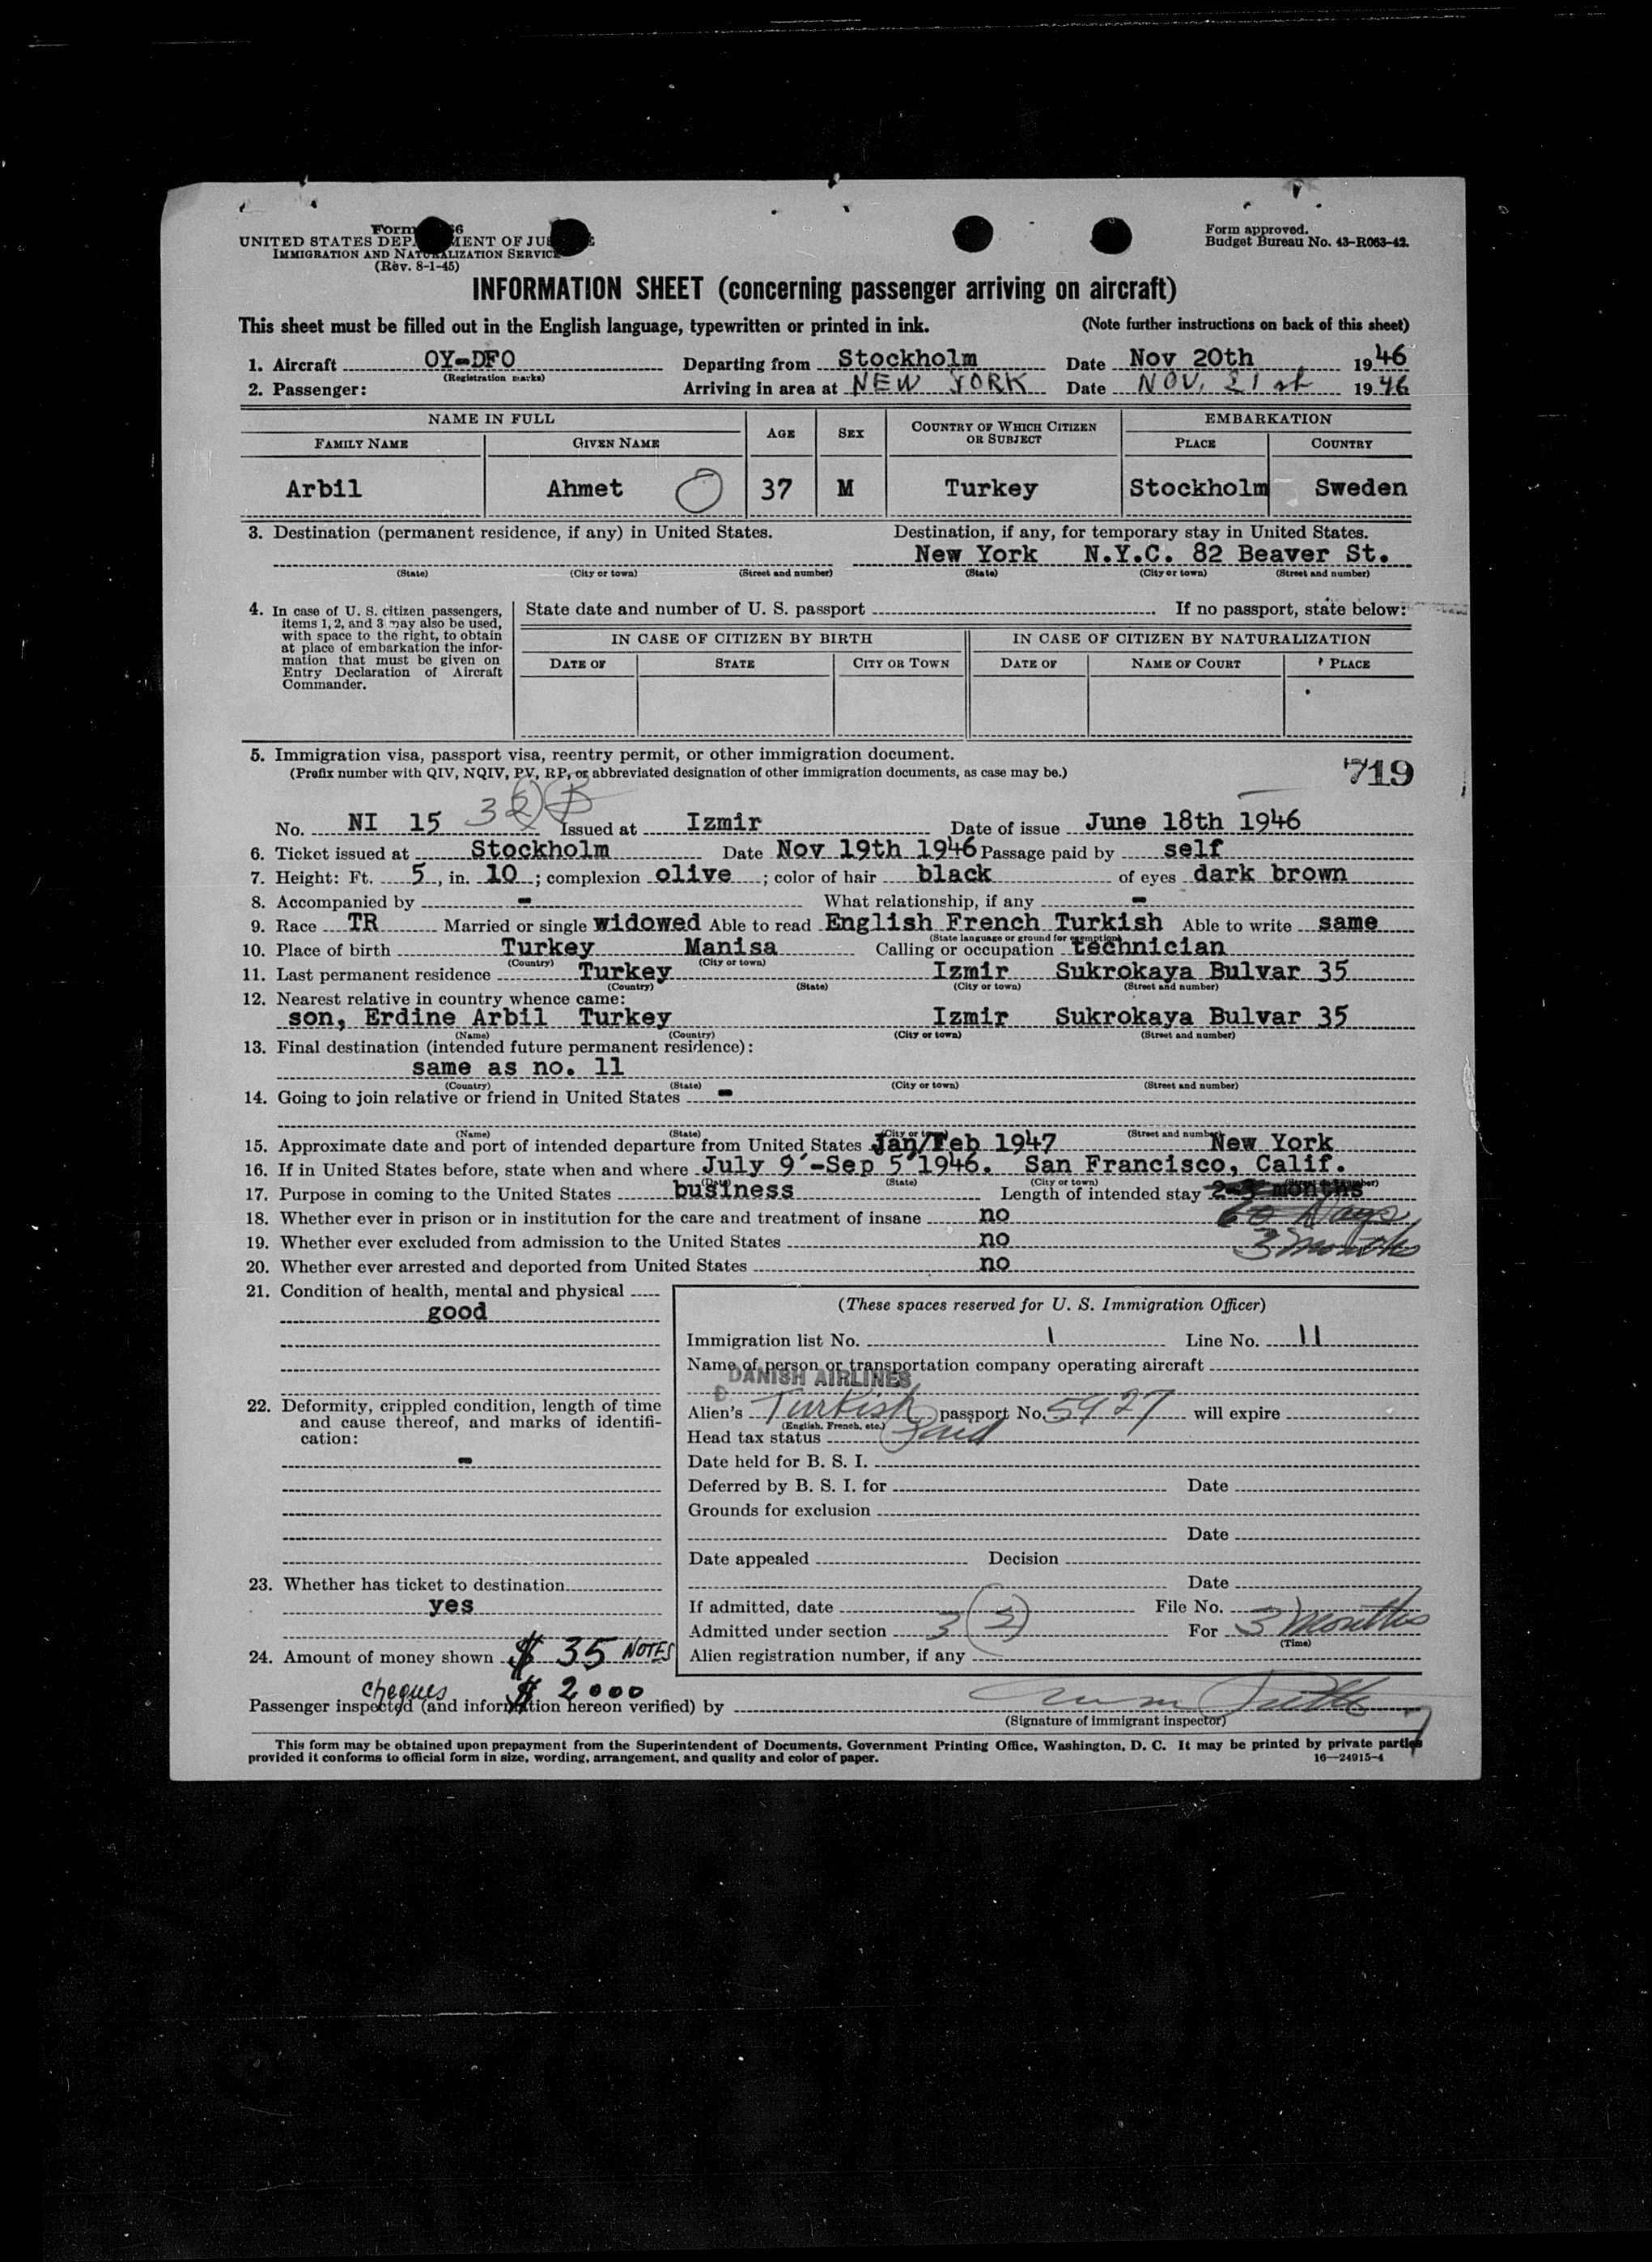 Form 6
UNITED STATES DEP MENT OF JUS
IMMIGRATION AND NATURALIZATION SERVICE
(Rev. 8-1-45)
Form approved.
Budget Bureau No. 43-R063-42.
INFORMATION SHEET (concerning passenger arriving on aircraft)
This sheet must be filled out in the English language, typewritten or printed in ink. (Note further instructions on back of this sheet)
1. Aircraft OY-DFO Departing from Stockholm Date Nov 20th 1946
(Registration marks)
2. Passenger: Arriving in area at NEW YORK Date NOV. 21st 1946
NAME IN FULL AGE SEX COUNTRY OF WHICH CITIZEN OR SUBJECT EMBARKATION
FAMILY NAME GIVEN NAME PLACE COUNTRY
Arbil Ahmet 37 M Turkey Stockholm Sweden
3. Destination (permanent residence, if any) in United States. Destination, if any, for temporary stay in United States.
New York N.Y.C. 82 Beaver St.
(State) (City or town) (Street and number) (State) (City or town) (Street and number)
4. In case of U. S. citizen passengers,
items 1, 2, and 3 may also be used,
with space to the right, to obtain
at place of embarkation the infor-
mation that must be given on
Entry Declaration of Aircraft
Commander.
State date and number of U. S. passport . If no passport, state below:
IN CASE OF CITIZEN BY BIRTH IN CASE OF CITIZEN BY NATURALIZATION
DATE OF STATE CITY OR TOWN DATE OF NAME OF COURT PLACE
5. Immigration visa, passport visa, reentry permit, or other immigration document.
(Prefix number with QIV, NQIV, PV, RP, or abbreviated designation of other immigration documents, as case may be.)
719
No. NI 15 3(2) Issued at Izmir Date of issue June 18th 1946
6. Ticket issued at Stockholm Date Nov 19th 1946 Passage paid by self
7. Height: Ft. 5, in. 10; complexion olive; color of hair black of eyes dark brown
8. Accompanied by - What relationship, if any -
9. Race TR Married or single widowed Able to read English French Turkish Able to write same
(State language or ground for exemption)
10. Place of birth Turkey Manisa Calling or occupation technician
(Country) (City or town)
11. Last permanent residence Turkey Izmir Sukrokaya Bulvar 35
(Country) (State) (City or town) (Street and number)
12. Nearest relative in country whence came:
son, Erdine Arbil Turkey Izmir Sukrokaya Bulvar 35
(Name) (Country) (City or town) (Street and number)
13. Final destination (intended future permanent residence):
same as no. 11
(Country) (State) (City or town) (Street and number)
14. Going to join relative or friend in United States -
(Name) (State) (City or town) (Street and number)
15. Approximate date and port of intended departure from United States Jan/Feb 1947 New York
16. If in United States before, state when and where July 9'-Sep 5'1946. San Francisco, Calif.
(Date) (State) (City or town) (Street and number)
17. Purpose in coming to the United States business Length of intended stay 2-3 months
18. Whether ever in prison or in institution for the care and treatment of insane no 60 Days
19. Whether ever excluded from admission to the United States no 3 Months
20. Whether ever arrested and deported from United States no
21. Condition of health, mental and physical
good
22. Deformity, crippled condition, length of time
and cause thereof, and marks of identifi-
cation:
-
23. Whether has ticket to destination
yes
24. Amount of money shown $ 35 NOTES
cheques $ 2000
(These spaces reserved for U. S. Immigration Officer)
Immigration list No. 1 Line No. 11
Name of person or transportation company operating aircraft
DANISH AIRLINES
Alien's Turkish passport No. 5927 will expire
(English, French, etc.)
Head tax status Paid
Date held for B. S. I.
Deferred by B. S. I. for Date
Grounds for exclusion
Date
Date appealed Decision
Date
If admitted, date File No.
Admitted under section 3(2) For 3 Months
(Time)
Alien registration number, if any
Passenger inspected (and information hereon verified) by
(Signature of immigrant inspector)
This form may be obtained upon prepayment from the Superintendent of Documents, Government Printing Office, Washington, D. C. It may be printed by private parties
provided it conforms to official form in size, wording, arrangement, and quality and color of paper. 16—24915-4